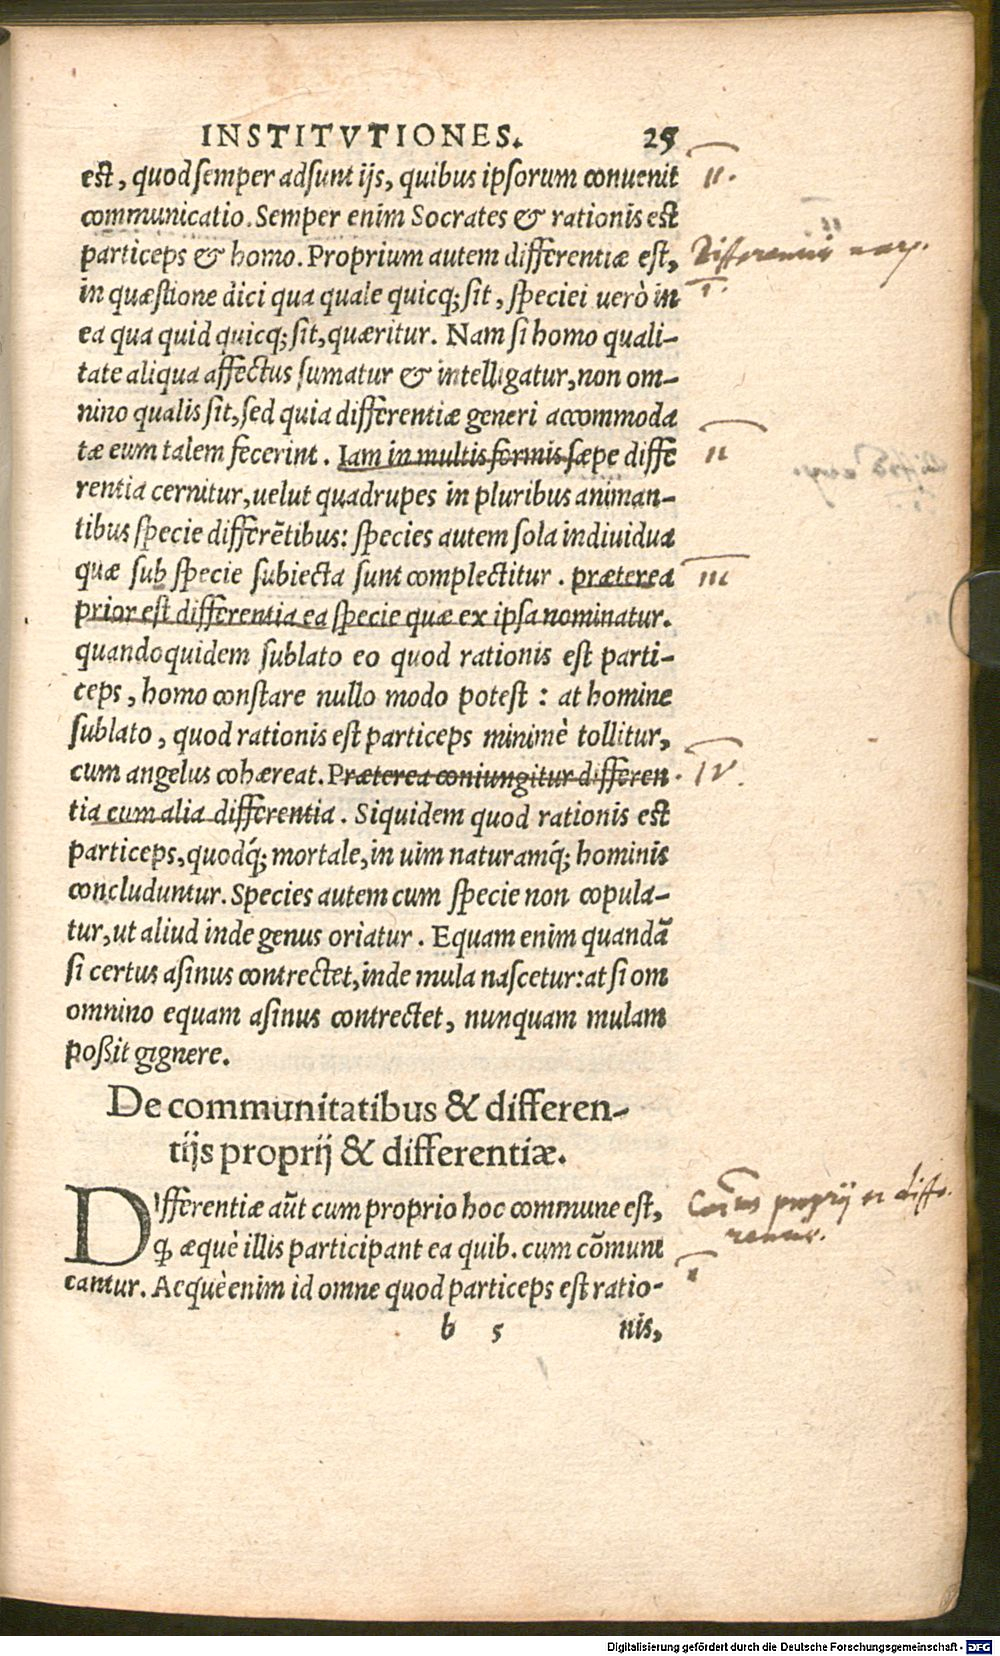 INSTITVTIONES. 25
est, quod semper adsunt ijs, quibus ipsorum conuenit
II.
communicatio. Semper enim Socrates & rationis est
particeps & homo. Proprium autem differentiæ est,
in quæstione dici qua quale quicq; sit, speciei uerò in
I.
ea qua quid quicq; sit, quæritur. Nam si homo quali-
tate aliqua affectus sumatur & intelligatur, non om-
nino qualis sit, sed quia differentiæ generi accommoda
tæ eum talem fecerint. Iam in multis formis sæpe diffe
II
rentia cernitur, uelut quadrupes in pluribus animan-
tibus specie differētibus: species autem sola indiuidua
quæ sub specie subiecta sunt complectitur. præterea
III
prior est differentia ea specie quæ ex ipsa nominatur.
quandoquidem sublato eo quod rationis est parti-
ceps, homo constare nullo modo potest: at homine
sublato, quod rationis est particeps minimè tollitur,
cum angelus cohæreat. Præterea coniungitur differen
IV.
tia cum alia differentia. Siquidem quod rationis est
particeps, quodq́; mortale, in uim naturamq́; hominis
concluduntur. Species autem cum specie non copula-
tur, ut aliud inde genus oriatur. Equam enim quandā
si certus asinus contrectet, inde mula nascetur: at si om
omnino equam asinus contrectet, nunquam mulam
poßit gignere.
De communitatibus & differen-
tijs proprij & differentiæ.
Differentiæ aūt cum proprio hoc commune est,
proprij et diffe-
rentiæ.
ꝙ æquè illis participant ea quib. cum cōmuni
cantur. Acquè enim id omne quod particeps est ratio-
I
b 5 nis,
Digitalisierung gefördert durch die Deutsche Forschungsgemeinschaft - DFG